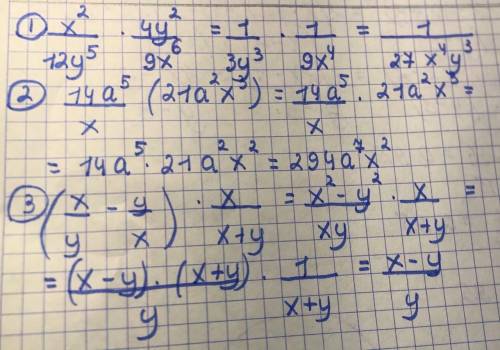 ① x²/12y⁵ · 4y²/9x⁶ = 1/3y³ · 1/9x⁴ = 1/27x⁴y³
② 14a⁵/x (21a²x³) = 14a⁵/x · 21a²x³ =
= 14a⁵ · 21a²x² = 294a⁷x²
③ (x/y - y/x) · x/x+y = x²-y²/xy · x/x+y =
= (x-y)·(x+y)/y · 1/x+y = x-y/y